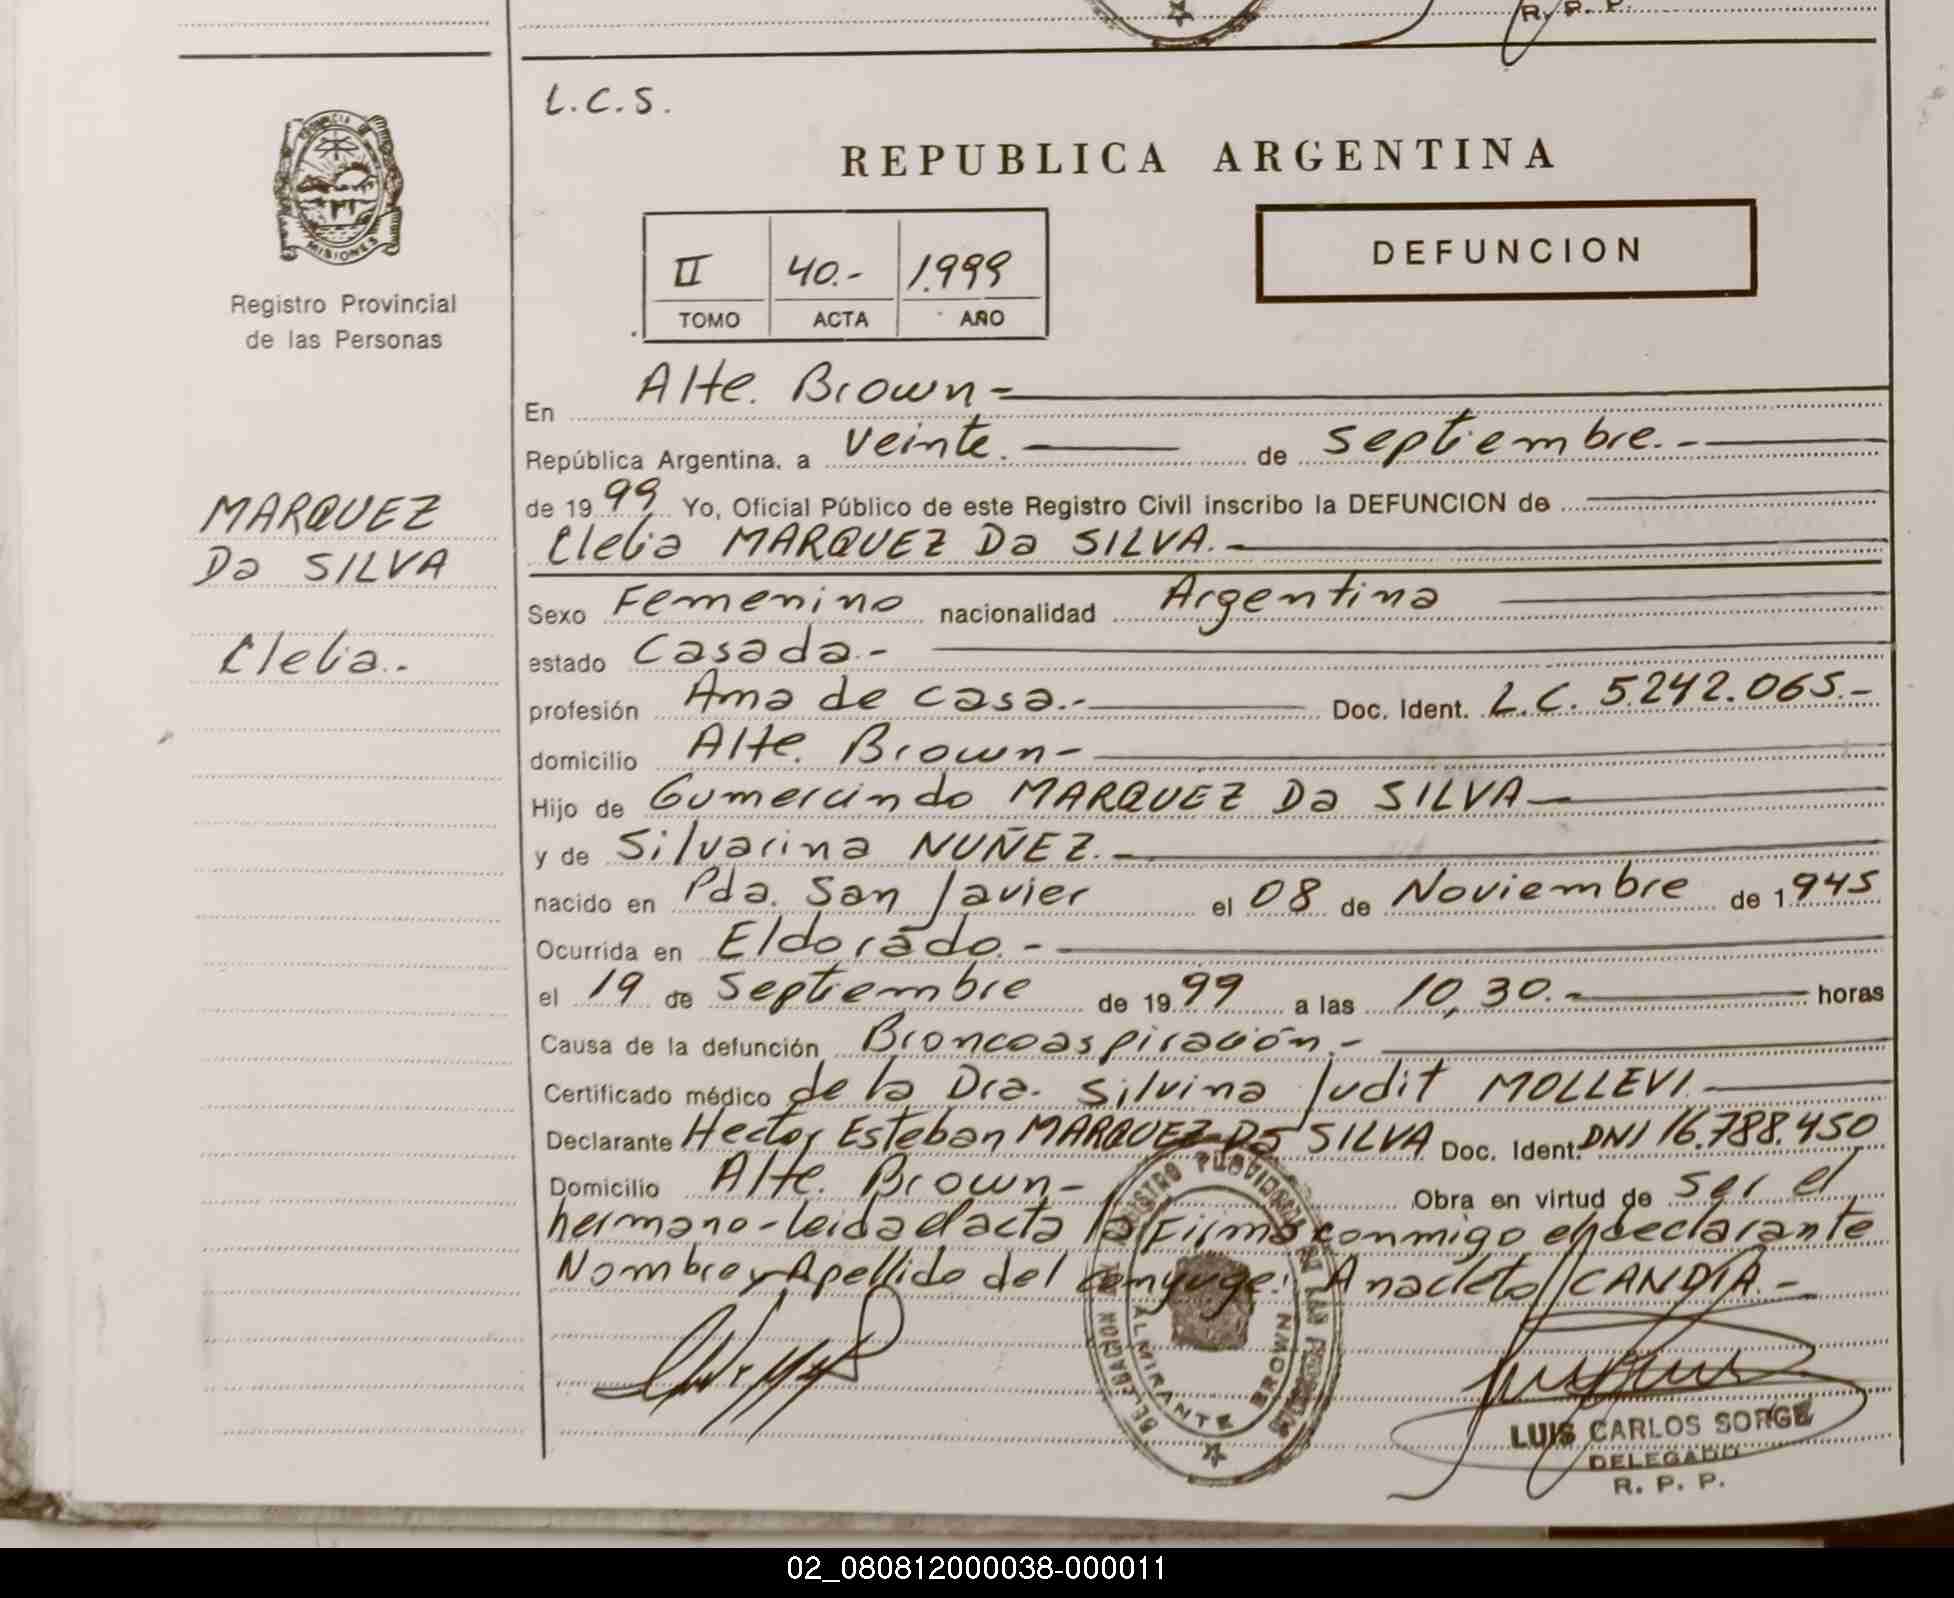 R. P. P.
L.C.S.
REPUBLICA ARGENTINA
PROVINCIA DE
MISIONES
Registro Provincial
de las Personas
DEFUNCION
II 40.- 1.999
TOMO ACTA AÑO
En Alte. Brown-
República Argentina, a veinte. de septiembre.-
de 1999 Yo, Oficial Público de este Registro Civil inscribo la DEFUNCION de
Clelia MARQUEZ Da SILVA.-
MARQUEZ
Da SILVA
Clelia.-
Sexo Femenino nacionalidad Argentina
estado Casada.-
profesión Ama de casa.- Doc. Ident. L.C. 5.242.065.-
domicilio Alte. Brown-
Hijo de Gumercindo MARQUEZ Da SILVA-
y de Silvarina NUÑEZ.-
nacido en Pda. San Javier el 08 de Noviembre de 1.945
Ocurrida en Eldorado.-
el 19 de Septiembre de 1999 a las 10,30.- horas
Causa de la defunción Broncoaspiración.-
Certificado médico de la Dra. Silvina Judit MOLLEVI.-
Declarante Hector Esteban MARQUEZ Da SILVA Doc. Ident. DNI 16.788.450
Domicilio Alte. Brown- Obra en virtud de ser el
hermano-leida el acta la firma conmigo el declarante
Nombre y Apellido del conyuge: Anacleto CANDIA.-
REGISTRO PROVINCIAL DE LAS PERSONAS
DELEGACION
ALMIRANTE BROWN
LUIS CARLOS SORGE
DELEGADO
R. P. P.
02_080812000038-000011